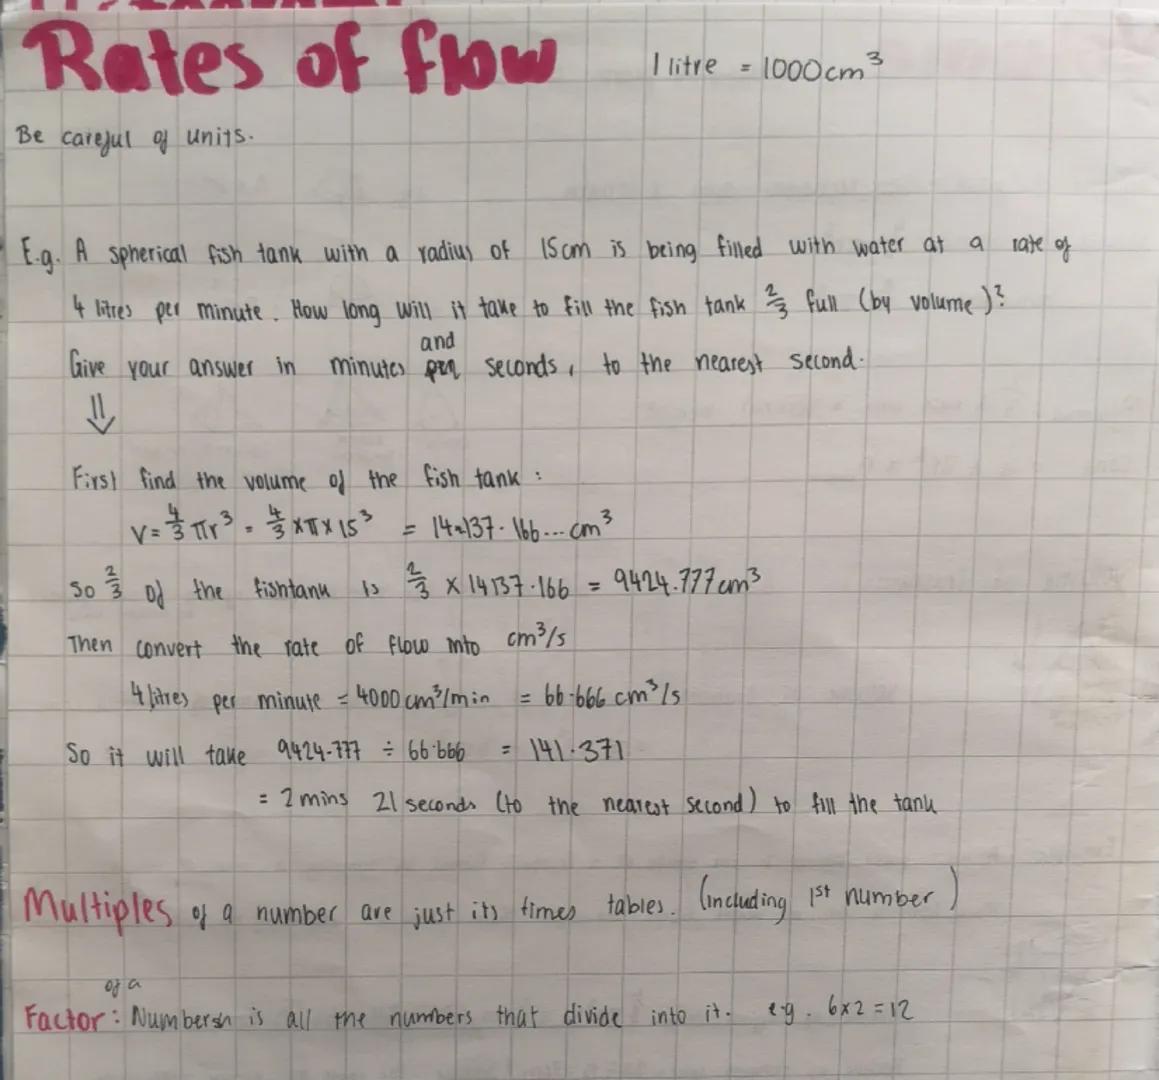 Rates of flow
1 litre = 1000cm³
Be careful of units.
E.g. A spherical fish tank with a radius of 15cm is being filled with water at a rate of
4 litres per minute. How long will it take to fill the fish tank 2/3 full (by volume)?
and
Give your answer in minutes per seconds, to the nearest second.
⇓
First find the volume of the fish tank:
V = 4/3 πr³ = 4/3 × π × 15³ = 14137.166... cm³
So 2/3 of the fishtank is 2/3 × 14137.166 = 9424.777cm³
Then convert the rate of flow into cm³/s
4 litres per minute = 4000 cm³/min = 66.666 cm³/s
So it will take 9424.777 ÷ 66.666 = 141.371
= 2 mins 21 seconds (to the nearest second) to fill the tank
Multiples of a number are just its times tables. (including 1st number)
of a
Factor: Numbers is all the numbers that divide into it. e.g. 6x2=12